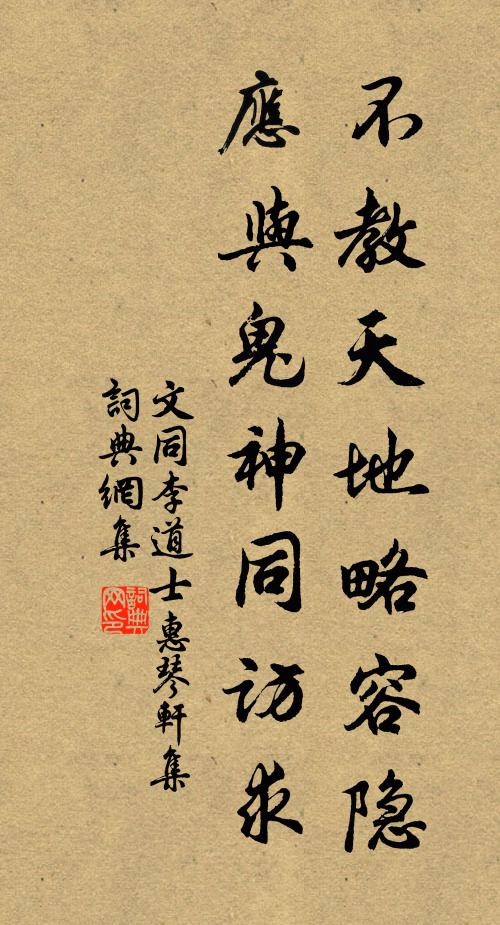 不教天地略容隐
應與鬼神同訪求
文同李道士惠琴軒集
詞典網集
詞典
网印